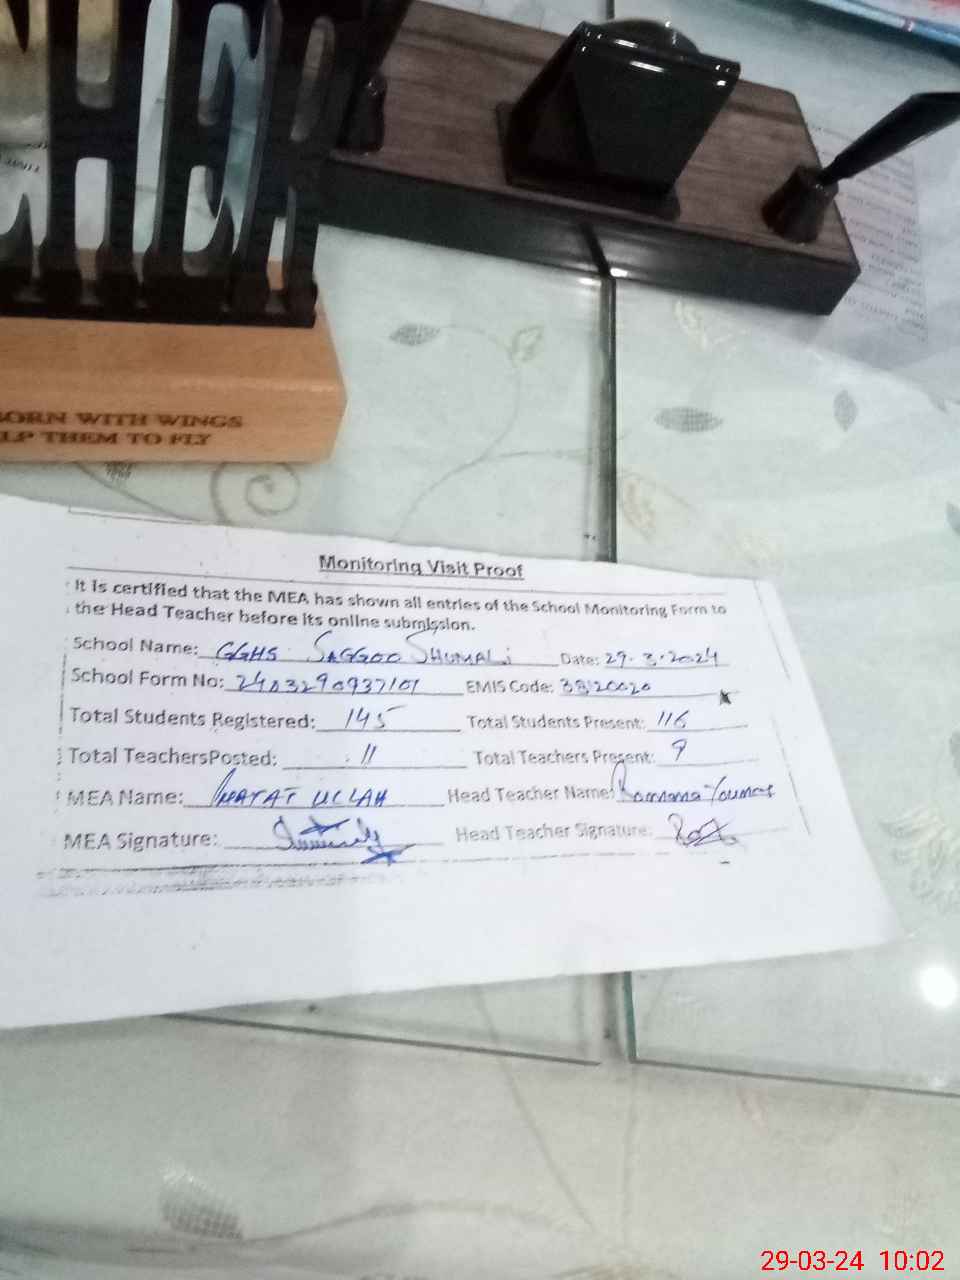 ORN WITH WINGS
LP THEM TO FLY
Monitoring Visit Proof
It is certified that the MEA has shown all entries of the School Monitoring Form to
the Head Teacher before its online submission.
School Name: GGHS SAGGOO SHUMALi Date: 29.3.2024
School Form No: 2403290937101 EMIS Code:
Total Students Registered: 145 Total Students Present: 116
Total TeachersPosted: 11 Total Teachers Present: 9
MEA Name: ULLAH Head Teacher Name:
MEA Signature: Head Teacher Signature:
29-03-24 10:02